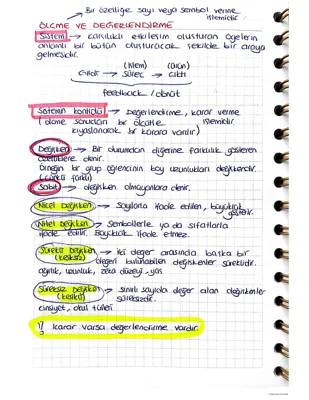 Bir özelliğe sayı veya sembol verme
işlemidir.
ÖLÇME VE DEĞERLENDİRME
Sistem → karşılıklı etkileşim oluşturan ögelerin
anlamlı bir bütün oluşturacak şekilde bir araya
gelmesidir.
(işlem) (ürün)
Girdi → süreç → çıktı
feedback / dönüt
Sistemin kontrolü → Değerlendirme, karar verme
işlemidir.
(ölçme sonuçları bir ölçütle
kıyaslanarak bir karara varılır)
Değişken → Bir durumdan diğerine farklılık gösteren
özelliklere denir.
Örneğin bir grup öğrencinin boy uzunlukları değişkendir.
(çünkü farklı)
Sabit → değişken olmayanlara denir.
Nicel Değişken → Sayılarla ifade edilen, büyüklük
gösterir.
Nitel Değişken → Sembollerle ya da sıfatlarla
ifade edilir. Büyüklük ifade etmez.
Sürekli Değişken → iki değer arasında başka bir
(kesiksiz) değeri bulunabilen değişkenler süreklidir.
ağırlık, uzunluk, zeka düzeyi, yaş
Süreksiz Değişken → sınırlı sayıda değer alan değişkenler
(kesikli) süreksizdir.
cinsiyet, okul türleri
! karar varsa değerlendirme vardır.